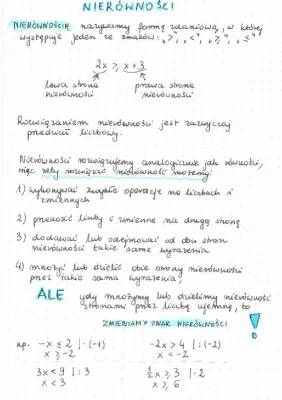 NIERÓWNOŚCI
NIERÓWNOŚCIĄ nazywamy formę zdaniową, w której
występuje jeden ze znaków: „>", „<", „≥", „≤"
2x ≥ x + 3
lewa strona nierówności
prawa strona nierówności
Rozwiązaniem nierówności jest zazwyczaj
przedział liczbowy.
Nierówności rozwiązujemy analogicznie jak równości,
więc żeby rozwiązać nierówność możemy:
1) wykonywać zwykłe operacje na liczbach i
zmiennych
2) przenosić liczby i zmienne na drugą stronę
3) dodawać lub odejmować od obu stron
nierówności takie same wyrażenia
4) mnożyć lub dzielić obie strony nierówności
przez takie same wyrażenia
ALE gdy mnożymy lub dzielimy nierówność
stronami przez liczbę ujemną, to
ZMIENIAMY ZNAK NIERÓWNOŚCI !
np. -x ≤ 2 | ·(-1)
x ≥ -2
-2x > 4 | :(-2)
x < -2
3x < 9 | :3
x < 3
½x ≥ 3 | ·2
x ≥ 6